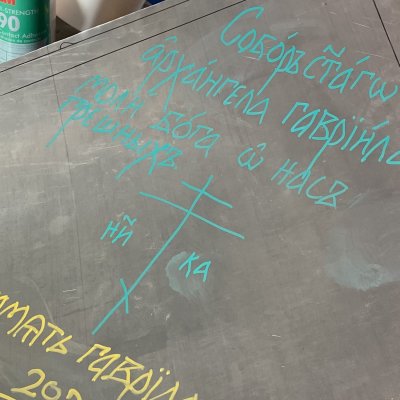 STRENGTH
90
Contact Adhe
Собо́ръ ст҃а́гѡ
а҆рха́нгела гаврїи́ла
моли бо́га ѡ҆ насъ
грѣшныхъ
НЙ
КА
амять гаврїил
202